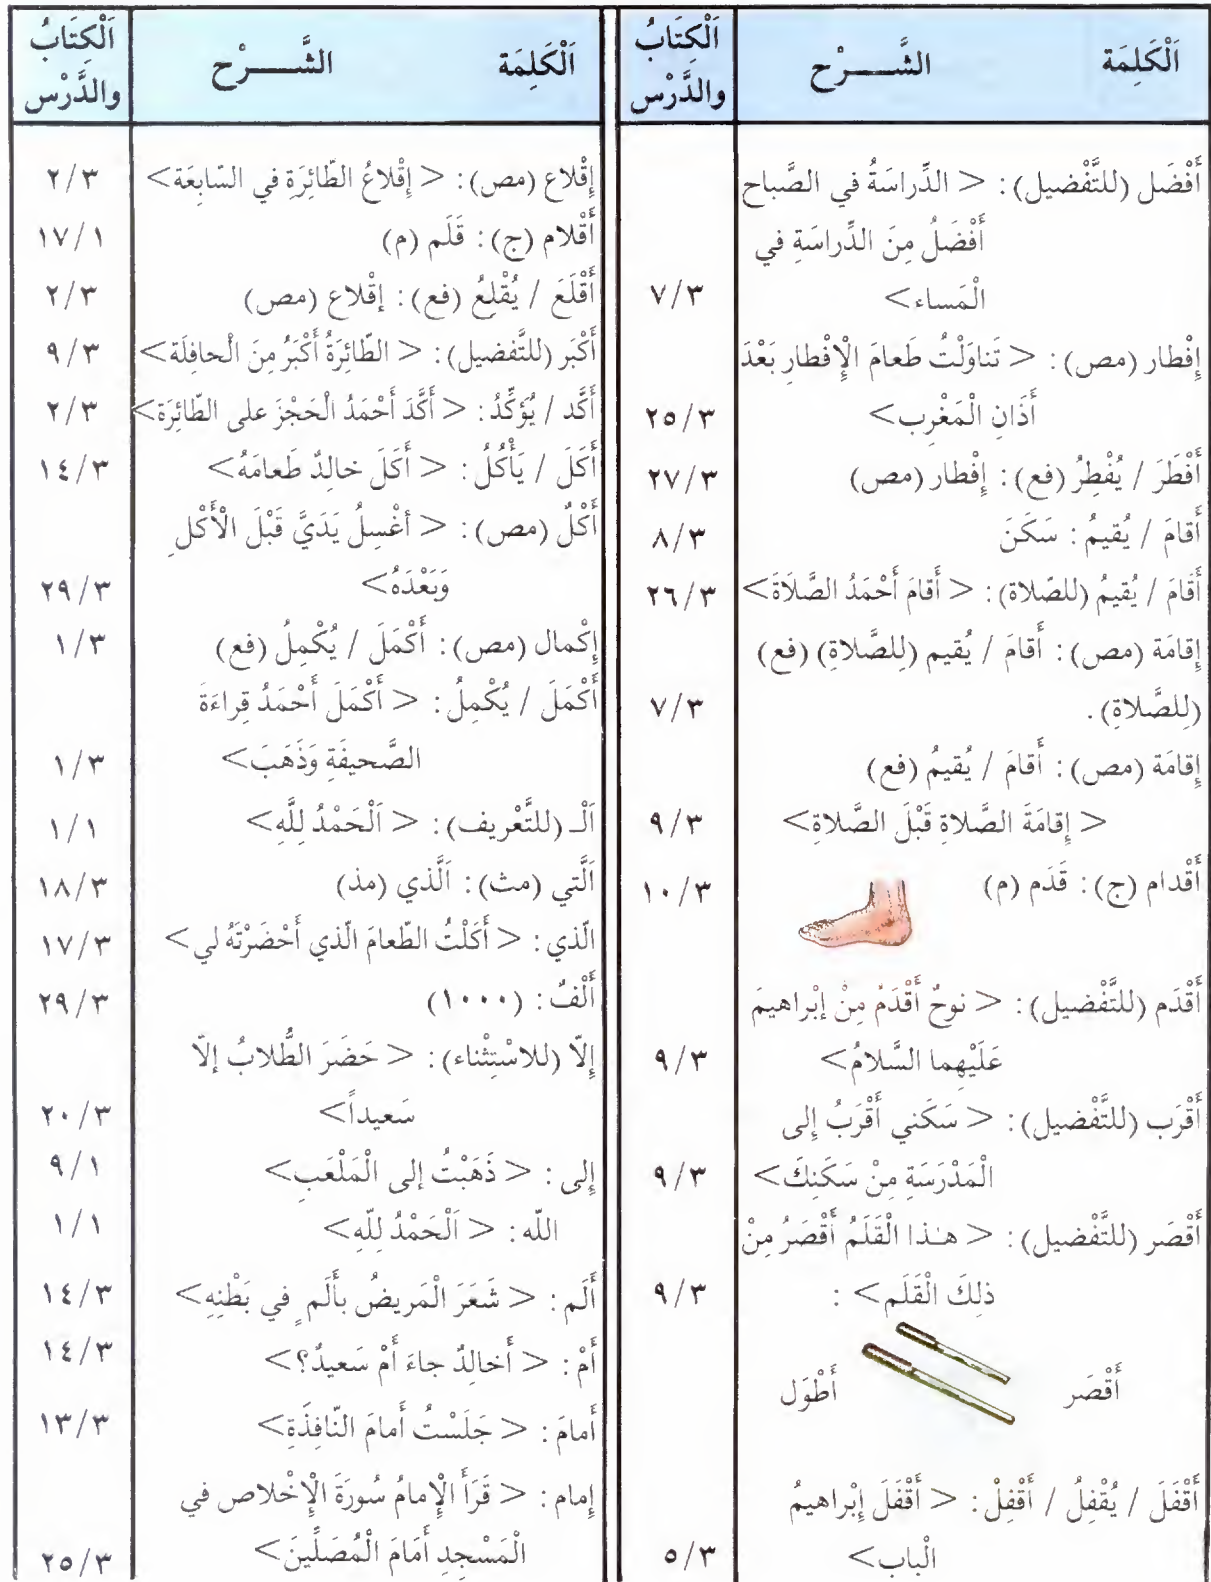 اَلْكَلِمَة الشَّـــرْح اَلْكِتَابُ والدَّرْس
أَفْضَل (للتَّفْضيل): < الدِّراسَةُ في الصَّباح
أَفْضَلُ مِنَ الدِّراسَةِ في
الْمَساء> ٧/٣
إِفْطار (مص): < تَناوَلْتُ طَعامَ الْإِفْطارِ بَعْدَ
أَذَانِ الْمَغْرِب> ٢٥/٣
أَفْطَرَ / يُفْطِرُ (فع): إِفْطار (مص) ٢٧/٣
أَقامَ / يُقيمُ: سَكَنَ ٨/٣
أَقَامَ / يُقيمُ (للصّلاة): < أَقامَ أَحْمَدُ الصَّلَاةَ> ٢٦/٣
إِقامَة (مص): أَقامَ / يُقيم (لِلصَّلاةِ) (فع)
(لِلصَّلاةِ). ٧/٣
إِقامَة (مص): أَقامَ / يُقيمُ (فع)
< إِقامَةَ الصَّلاةِ قَبْلَ الصَّلاةِ> ٩/٣
أَقْدام (ج): قَدَم (م) ١٠/٣
أَقْدَم (للتَّفْضيل): < نوحٌ أَقْدَمُ مِنْ إبْراهيمَ
عَلَيْهِما السَّلامُ> ٩/٣
أَقْرَب (للتَّفْضيل): < سَكَني أَقْرَبُ إِلى
الْمَدْرَسَةِ مِنْ سَكَنِكَ> ٩/٣
أَقْصَر (للتَّفْضيل): < هـٰذا الْقَلَمُ أَقْصَرُ مِنْ
ذلِكَ الْقَلَم> : ٩/٣
أَقْصَر أَطْوَل
أَقْفَلَ / يُقْفِلُ / أَقْفِلْ: < أَقْفَلَ إِبْراهيمُ
الْباب> ٥/٣
اَلْكَلِمَة الشَّـــرْح اَلْكِتَابُ والدَّرْس
إِقْلاع (مص): < إِقْلاعُ الطّائِرَةِ في السّابِعَة> ٢/٣
أَقْلام (ج): قَلَم (م) ١٧/١
أَقْلَعَ / يُقْلِعُ (فع): إقْلاع (مص) ٢/٣
أَكْبَر (للتَّفضيل): < الطّائِرَةُ أَكْبَرُ مِنَ الْحافِلَة> ٩/٣
أَكَّد / يُؤَكِّدُ: < أَكَّدَ أَحْمَدُ الْحَجْزَ على الطّائِرَة> ٢/٣
أَكَلَ / يَأْكُلُ: < أَكَلَ خالِدٌ طَعامَهُ> ١٤/٣
أَكْلٌ (مص): < أغْسِلُ يَدَيَّ قَبْلَ الْأَكْلِ
وَبَعْدَهُ> ٢٩/٣
إِكْمال (مص): أَكْمَلَ / يُكْمِلُ (فع) ١/٣
أَكْمَلَ / يُكْمِلُ: < أَكْمَلَ أَحْمَدُ قِراءَةَ
الصَّحيفَةِ وَذَهَبَ> ١/٣
اَلْـ (للتَّعْريف): < اَلْحَمْدُ لِلَّهِ> ١/١
اَلَّتي (مث): اَلَّذي (مذ) ١٨/٣
الّذي: < أَكَلْتُ الطّعامَ الّذي أَحْضَرْتَهُ لي> ١٧/٣
أَلْفٌ: (١٠٠٠) ٢٩/٣
إِلّا (للاسْتِثْناء): < حَضَرَ الطُّلابُ إِلّا
سَعيداً> ٢٠/٣
إِلى: < ذَهَبْتُ إلى الْمَلْعَبِ> ٩/١
اللّه: < اَلْحَمْدُ لِلّهِ> ١/١
أَلَم: < شَعَرَ الْمَريضُ بأَلَمٍ في بَطْنِهِ> ١٤/٣
أَمْ: < أَخالِدٌ جاءَ أَمْ سَعيدٌ؟> ١٤/٣
أَمامَ: < جَلَسْتُ أَمامَ النّافِذَةِ> ١٣/٣
إِمام: < قَرَأَ الْإِمامُ سُورَةَ الْإِخْلاص في
الْمَسْجِدِ أَمَامَ الْمُصَلِّينَ> ٢٥/٣